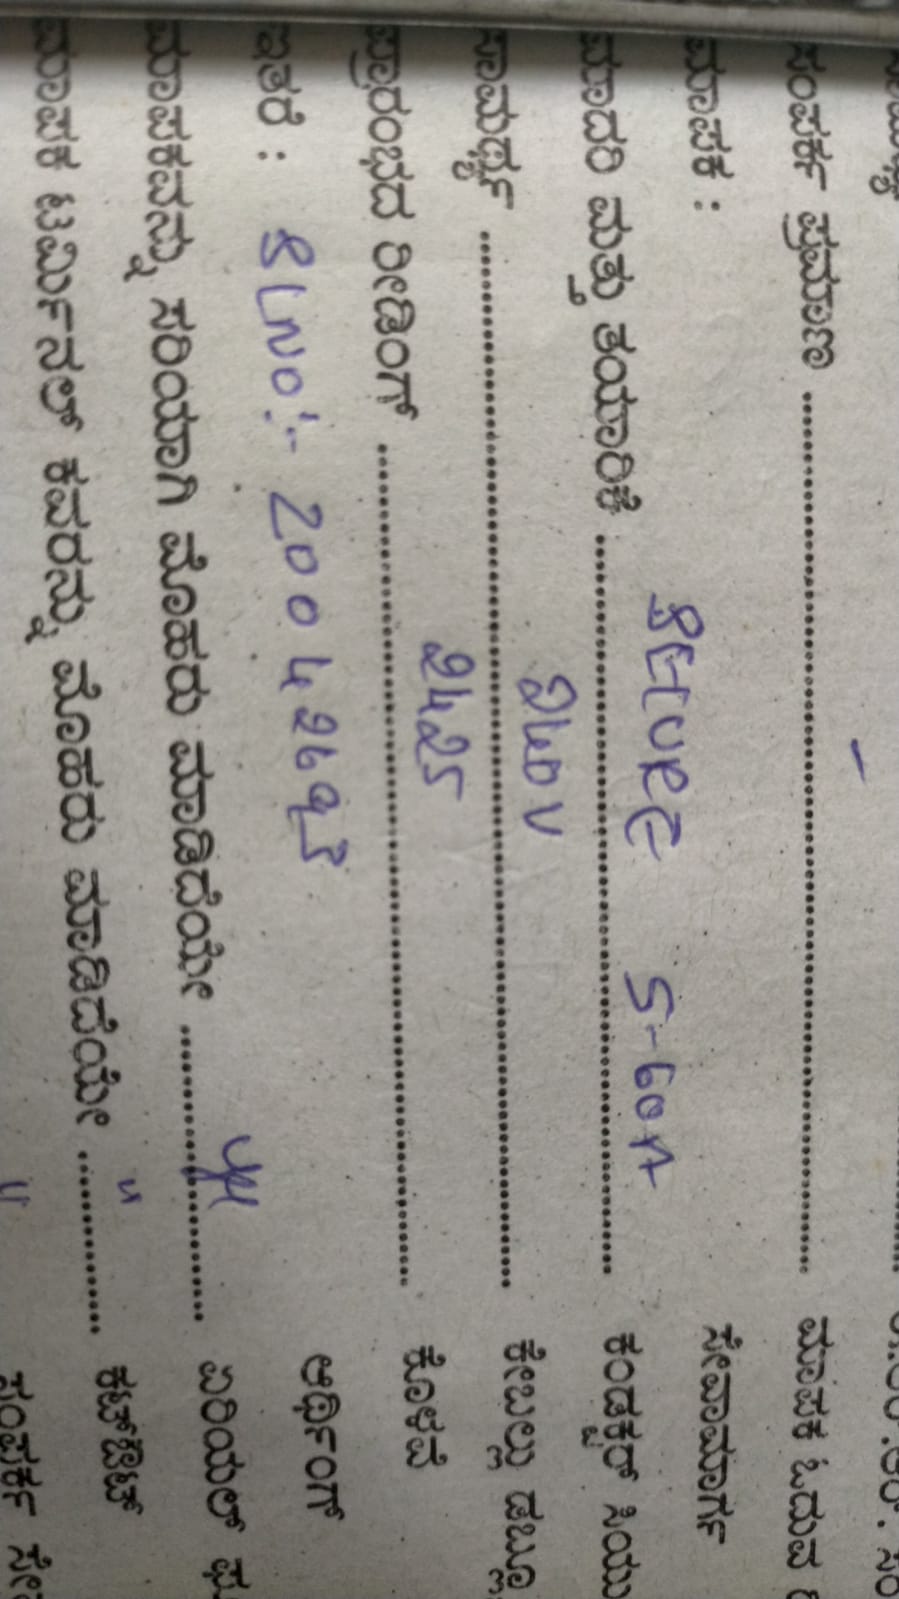 ಸಂಪರ್ಕ ಪ್ರಮಾಣ ........ – ........ ಮಾಪಕ ಓದುವ
ಮಾಪಕ : ಸೇವಾಮಾರ್ಗ
ಮಾದರಿ ಮತ್ತು ತಯಾರಿಕೆ ........ SECURE S-60A ........ ಕಂಡಕ್ಟರ್ ಸಿಯು
ಸಾಮರ್ಥ್ಯ ........ 240V ........ ಕೇಬಲ್ಲು ಡಬ್ಲೂ
ಪ್ರಾರಂಭದ ರೀಡಿಂಗ್ ........ 2425 ........ ಕೊಳವೆ
ಇತರೆ : SLNO:- 2004269 ಅರ್ಥಿಂಗ್
ಮಾಪಕವನ್ನು ಸರಿಯಾಗಿ ಮೊಹರು ಮಾಡಿದೆಯೇ ........ ಏರಿಯಲ್
ಮಾಪಕ ಟರ್ಮಿನಲ್ ಕವರನ್ನು ಮೊಹರು ಮಾಡಿದೆಯೇ ........ " ........ ಕಟ್‌ಔಟ್
" ಸಂಪರ್ಕ